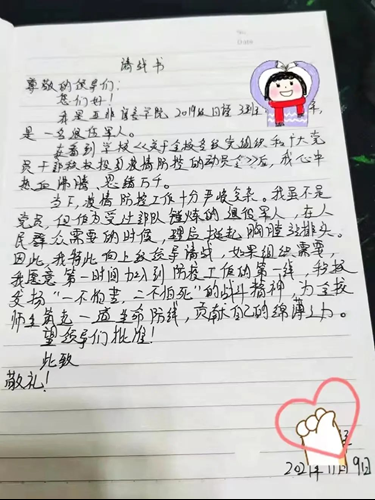 No.
Date
请战书
尊敬的领导们:
您们好!
我是亚非语言学院,2019级日语3班
年,
是一名退役军人。
在看到学校《关于全校各级党组织和广大党
员干部积极投身疫情防控的动员令》后,我心中
热血沸腾、思绪万千。
当下,疫情防控工作十分严峻复杂。我虽不是
党员,但作为受过部队锤炼的退役军人,在人
民群众需要的时候,理应挺起胸膛站排头。
因此,我特此向上级领导请战,如果组织需要,
我愿意第一时间加入到防控工作的第一线,积极
发扬“一不怕苦,二不怕死”的战斗精神,为全校
师生筑起一盛生命防线,贡献自己的绵薄之力。
望领导们批准!
此致
敬礼!
2021年11月9日